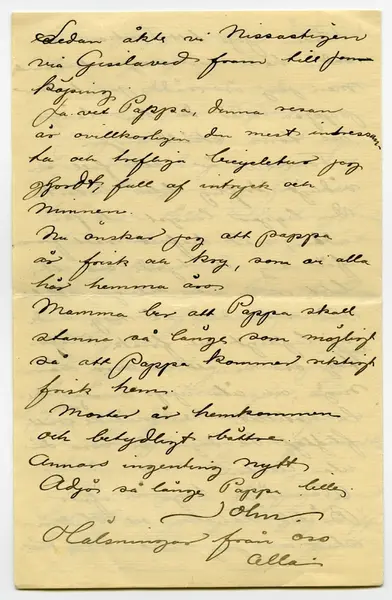 Sedan åkte vi Nissastigen
via Gislaved fram till Jön-
köping.
Ja vet Pappa, denna resan
är ovillkorligen den mest intressan-
ta och trefliga bicycletur jag
gjordt, full af intryck och
minnen.
Nu önskar jag att pappa
är frisk och kry, som vi alla
här hemma äro.
Mamma ber att Pappa skall
stanna så länge som möjligt
så att Pappa kommer riktigt
frisk hem.
Moster är hemkommen
och betydligt bättre.
Annars ingenting nytt
Adjös så länge Pappa lille,
John.
Hälsningar från oss
alla